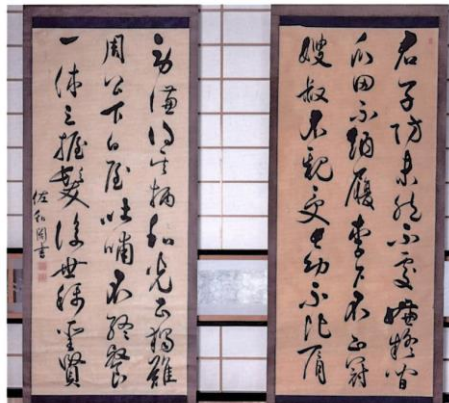 君子防未然不處嫌疑間
瓜田不納履李下不正冠
嫂叔不親受長幼不比肩
勞謙得其柄和光甚獨難
周公下白屋吐哺不終餐
一沐三握髮後世稱聖賢